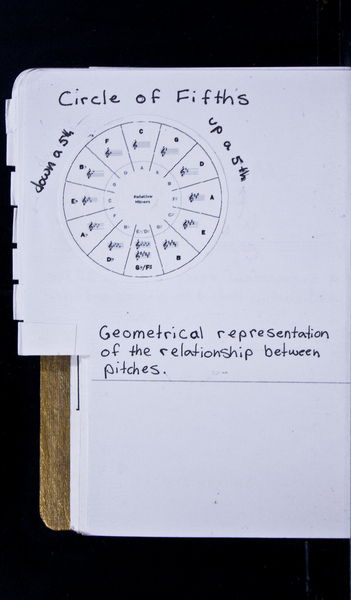 Circle of Fifths
down a 5th
up a 5th
C
G
D
A
E
B
G♭/F♯
D♭
A♭
E♭
B♭
F
Relative
Minors
Geometrical representation
of the relationship between
pitches.